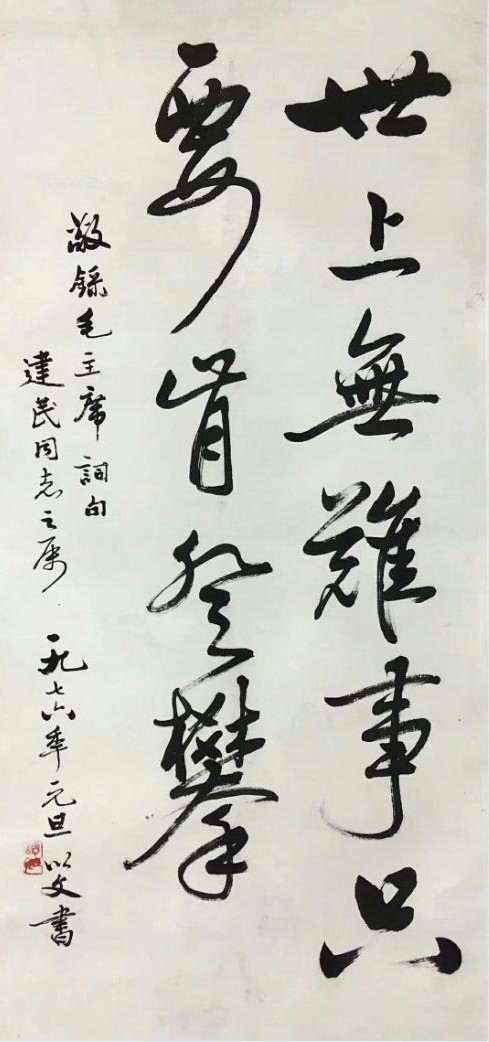 世上無難事只
要肯登攀
敬錄毛主席詞句
建民同志之属
一九七六年元旦以文書